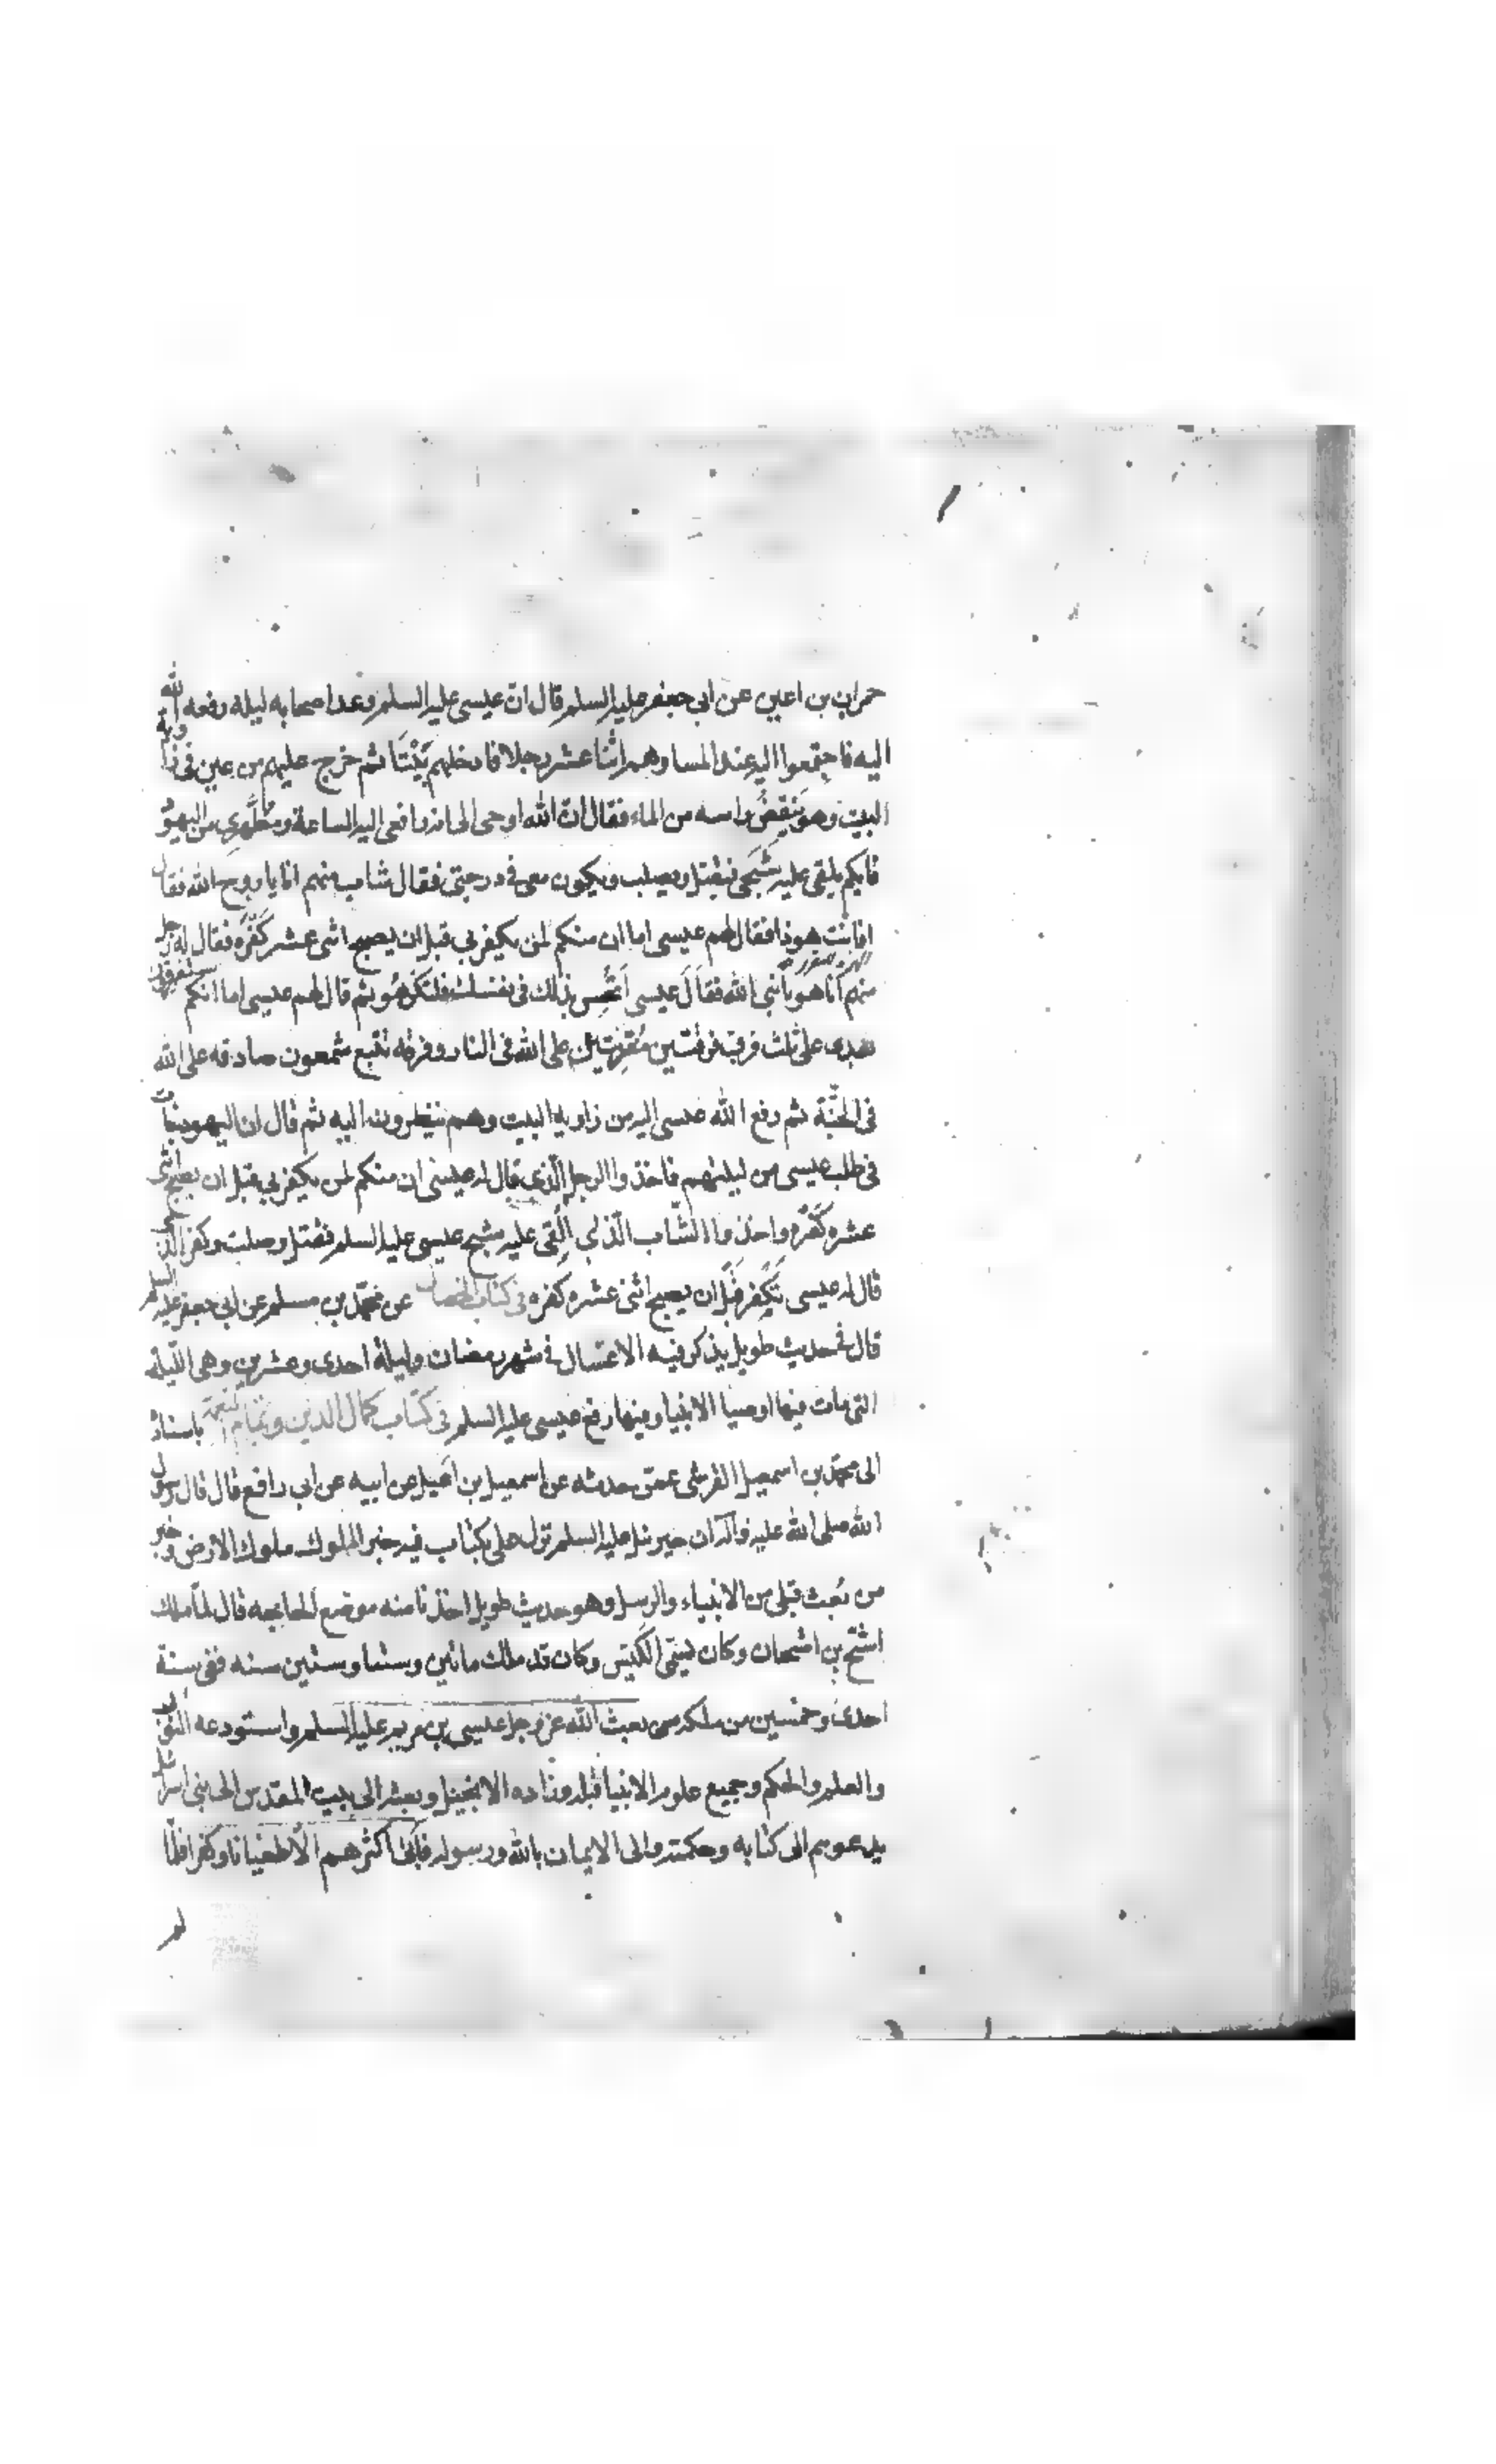 حمران بن اعين عن ابى جعفر عليه السلم قال ان عيسى عليه السلم وعد اصحابه ليلة رفعه الله
اليه فاجتمعوا اليه عند المسا وهم اثنا عشر رجلا فادخلهم بَيْتًا ثم خرج عليهم من عين فى زاوية
البيت وهو ينفضُ راسه من الماء فقال ان الله اوحى الى انه رافعى اليه الساعة ومُطَهِّرِى من اليهود
فايكم يلقى عليه شَبَحى فيقتل ويصلب ويكون معى فى درجتى فقال شاب منهم انا يا روح الله فقال
افانت هوذا فقال لهم عيسى اما ان منكم لمن يكفر بى قبل ان يصبح اثنى عشر كَفْرَة فقال له رجل
منهم أنا هو يا نبى الله فقالَ عيسى اَتُحِس بذلك فى نفسك فلتكن هُو ثم قال لهم عيسى اما انكم ستفرقون
بعدى على ثلث فرق فرقتين مُفْتريتين على الله فى النار وفرقه تتبع شمعون صادقه على الله
فى الجنَّة ثم رفع الله عيسى اليه من زاوية البيت وهم ينظرون اليه ثم قال ان اليهود جاءت
فى طلب عيسى من ليلتهم فاخذوا الرجل الَّذى قال له عيسى ان منكم لمن يكفر بى قبل ان يصبح اثنى
عشره كَفْرَه واخذوا الشَّاب الَّذى اُلْقِى عليه شبح عيسى عليه السلم فقتل وصلب وكفر الذى
قال له عيسى تَكْفِر قَبْل ان يصبح اثنى عشره كفره فى كتاب الخصال عن محمّد بن مسلم عن ابى جعفر عليه السلم
قال فى حديث طويل يذكر فيه الاغتسال فى شهر رمضان وليلة احدى وعشرين وهى اللّيلة
التى مات فيها اوصيا الانبيا وفيها رفع عيسى عليه السلم فى كتاب كمال الدين وتمام النعمة باسناده
الى محمّد بن اسمعيل القرشى عمّن حدثه عن اسمعيل بن ابى رافع عن ابيه عن ابى رافع قال قال رسول
الله صلى الله عليه وآله ان جبرئيل عليه السلم نزل على بكتاب فيه خبر الملوك ملوك الارض وخبر
من بُعث قبلى من الانبياء والرسل وهو حديث طويل اخذنا منه موضع الحاجه قال لمّا ملك
اشبخ بن اشجان وكان يسمّى الكَيِّس وكان قد ملك مائتين وستا وستين سنه ففى سنة
احدى وخمسين من ملكه بعث الله عز وجل عيسى بن مريم عليه السلم واستودعه النور
والعلم والحكم وجميع علوم الانبيا قبله وزاده الانجيل وبعثه الى بيت المقدس الى بنى اسرائيل
يدعوهم الى كتابه وحكمته والى الايمان بالله ورسوله فابى اكثرهم الّا طغيانا وكفرا فلمّا